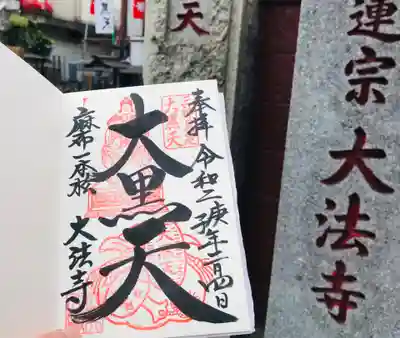 奉拝 令和二庚子年二月四日
大黒天
麻布一本松 大法寺
天
蓮宗 大法寺